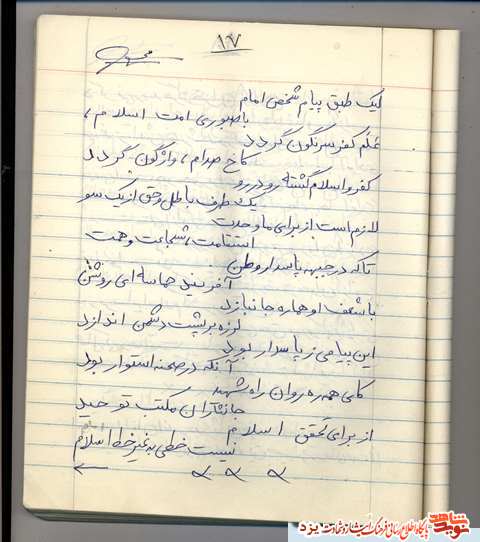 ۱۷
لیک طبق پیام شخص امام
با صبوری امت اسلام،
عَلَم کفر سرنگون گردد
کاخ صدام، واژگون گردد
کفر و اسلام گشته رو در رو
یک طرف باطل و حق از یک سو
لازم است از برای ما وحدت
استقامت، شجاعت و همت
تا که در جبهه پاسدار وطن
آفریند حماسه ای روشن
با شعف او هماره جانبازد
لرزه بر پشت دشمن اندازد
این پیامی ز پاسدار بود
آنکه در صحنه استوار بود
کای همه رهروان راه شهید
جانثاران مکتب توحید
از برای تحقق اسلام
نیست خطی به غیر خط اسلام
نوید شاهد
پایگاه اطلاع رسانی فرهنگ ایثار و شهادت یزد